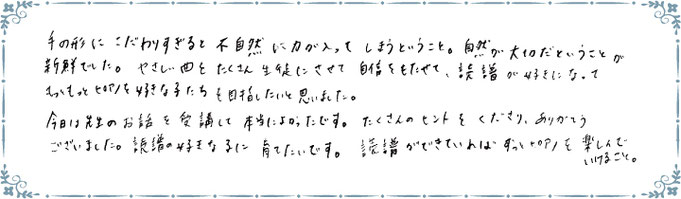 手の形に こだわりすぎると 不自然に力が入って しまうということ。自然が大切だということが
新鮮でした。 やさしい曲をたくさん生徒にさせて 自信をもたせて、読譜が好きになって
もっともっとピアノを好きな子たちを目指したいと思いました。
今日は先生のお話を受講して本当によかったです。 たくさんのヒントをくださり、ありがとう
ございました。読譜の好きな子に育てたいです。 読譜ができていればずっとピアノを楽しんで
いけること。